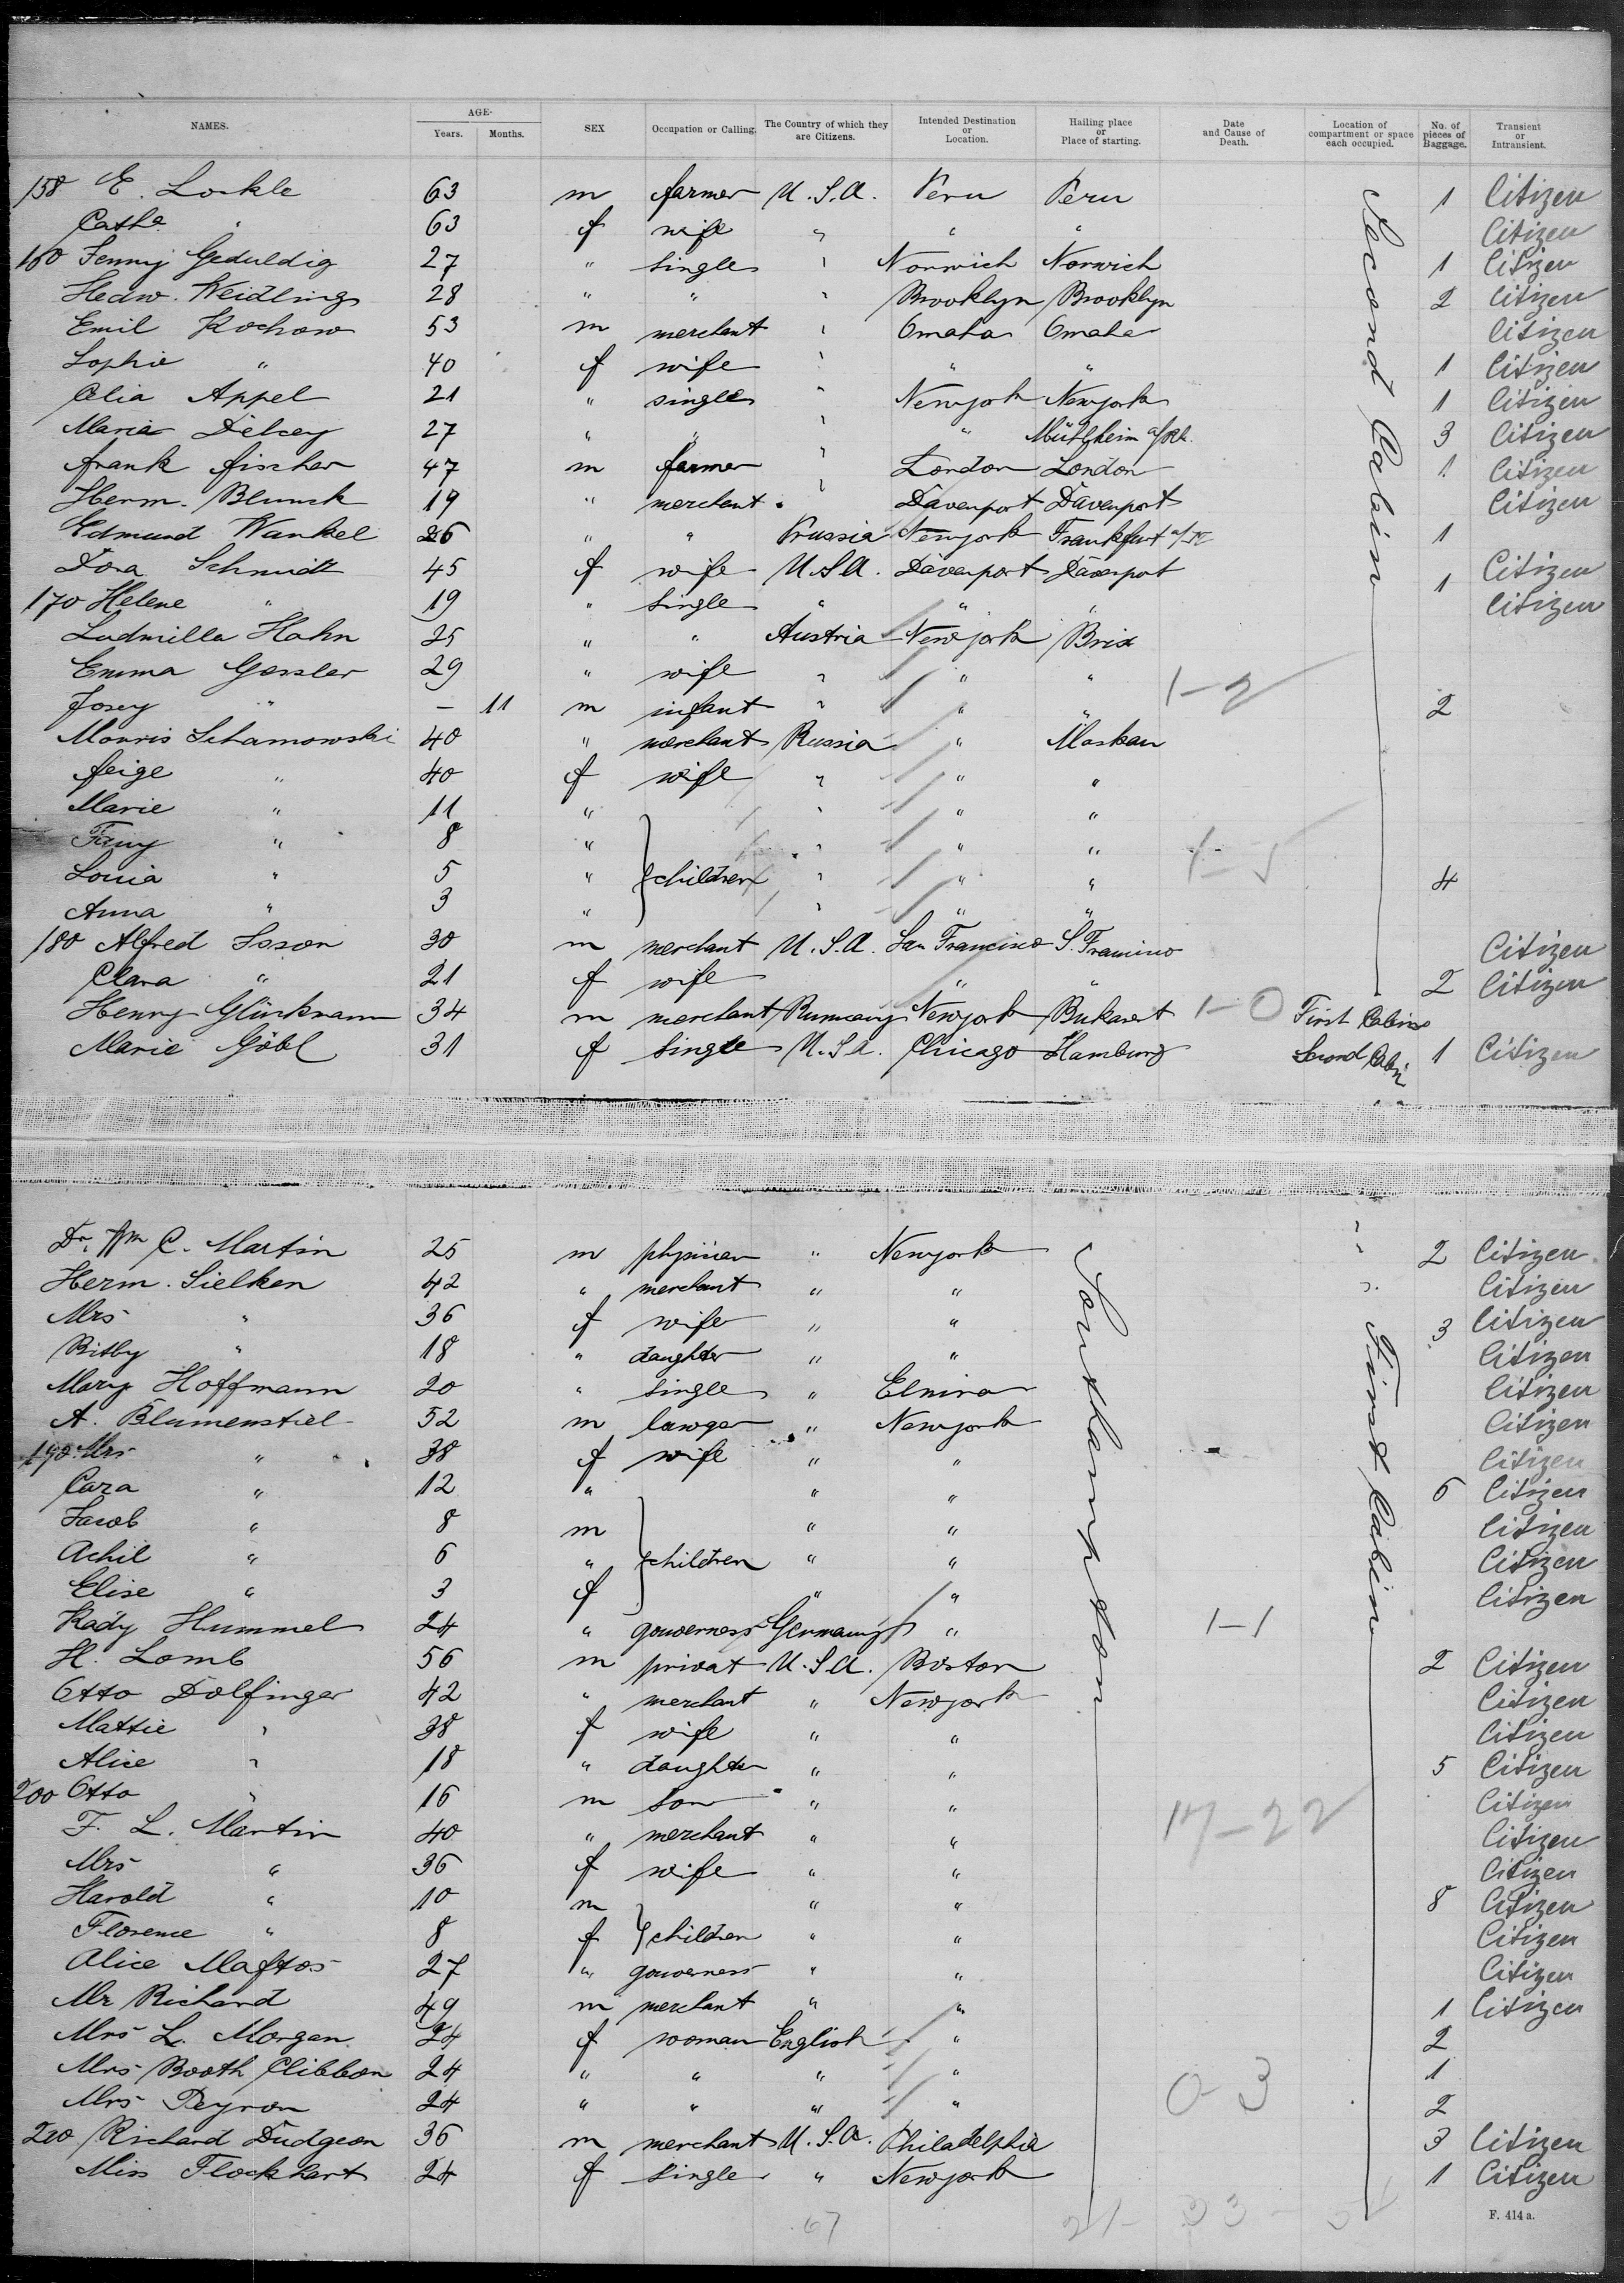 NAMES. AGE. Years. Months. SEX Occupation or Calling. The Country of which they are Citizens. Intended Destination or Location. Hailing place or Place of starting. Date and Cause of Death. Location of compartment or space each occupied. No. of pieces of Baggage. Transient or Intransient.
158 E. Lockle 63 m farmer U.S.A. Peru Peru 1 Citizen
Cathe " 63 f wife " " " Citizen
160 Jenny Geduldig 27 " single " Norwich Norwich 1 Citizen
Hedw. Weidling 28 " " " Brooklyn Brooklyn 2 Citizen
Emil Kochow 53 m merchant " Omaha Omaha Citizen
Sophie " 40 f wife " " " 1 Citizen
Celia Appel 21 " single " Newyork Newyork 1 Citizen
Maria Delcey 27 " " " " Mühlheim a/Rh. 3 Citizen
Frank Fischer 47 m farmer " London London 1 Citizen
Herm. Blunck 19 " merchant " Davenport Davenport Citizen
Edmund Wankel 26 " " Prussia Newyork Frankfurt a/M 1
Dora Schmidt 45 f wife U.S.A. Davenport Davenport 1 Citizen
170 Helene " 19 " single " " " Citizen
Ludmilla Hahn 25 " " Austria Newyork Brix
Emma Gessler 29 " wife " " " 1-2
Josey " - 11 m infant " " " 2
Morris Schamowski 40 " merchant Russia " Moskau
Feige " 40 f wife " " "
Marie " 11 " " " "
Fany " 8 " " " " 1-5
Louia " 5 " children " " " 4
Anna " 3 " " " "
180 Alfred Sson 30 m merchant U.S.A. San Francisco S. Francisco Citizen
Clara " 21 f wife " " 2 Citizen
Henry Glückmann 34 m merchant Rumany Newyork Bukarest 1-0 First Cabine
Marie Göbl 31 f single U.S.A. Chicago Hamburg Second Cabin 1 Citizen
Second Cabin
Dr. Wm C. Martin 25 m physician " Newyork 2 Citizen
Herm. Sielken 42 " merchant " " Citizen
Mrs " 36 f wife " " 3 Citizen
Bitby " 18 " daughter " " Citizen
Mary Hoffmann 20 " single " Elmira Citizen
A. Blumenstiel 52 m lawyer " Newyork Citizen
190 Mrs " 38 f wife " " Citizen
Cara " 12 " " " 6 Citizen
Jacob " 8 m " " Citizen
Achil " 6 " children " " Citizen
Elise " 3 f " " Citizen
Kady Hummel 24 " gouverness Germany " 1-1
H. Lomb 56 m privat U.S.A. Boston 2 Citizen
Otto Dolfinger 42 " merchant " Newyork Citizen
Mattie " 38 f wife " " Citizen
Alice " 18 " daughter " " 5 Citizen
200 Otto " 16 m son " " Citizen
F. L. Martin 40 " merchant " " 17-22 Citizen
Mrs " 36 f wife " " Citizen
Harold " 10 m " " 8 Citizen
Florence " 8 f children " " Citizen
Alice Maftos 27 " gouverness " " Citizen
Mr Richard 49 m merchant " " 1 Citizen
Mrs L. Morgan 24 f woman English " 2
Mrs Booth Clibbon 24 " " " " 1
Mrs Peyron 24 " " " " 0-3 2
210 Richard Dudgeon 36 m merchant U.S.A. Philadelphia 3 Citizen
Miss Flockhart 24 f single " Newyork 1 Citizen
Southampton
First Cabine
67 21- 33-
F. 414 a.